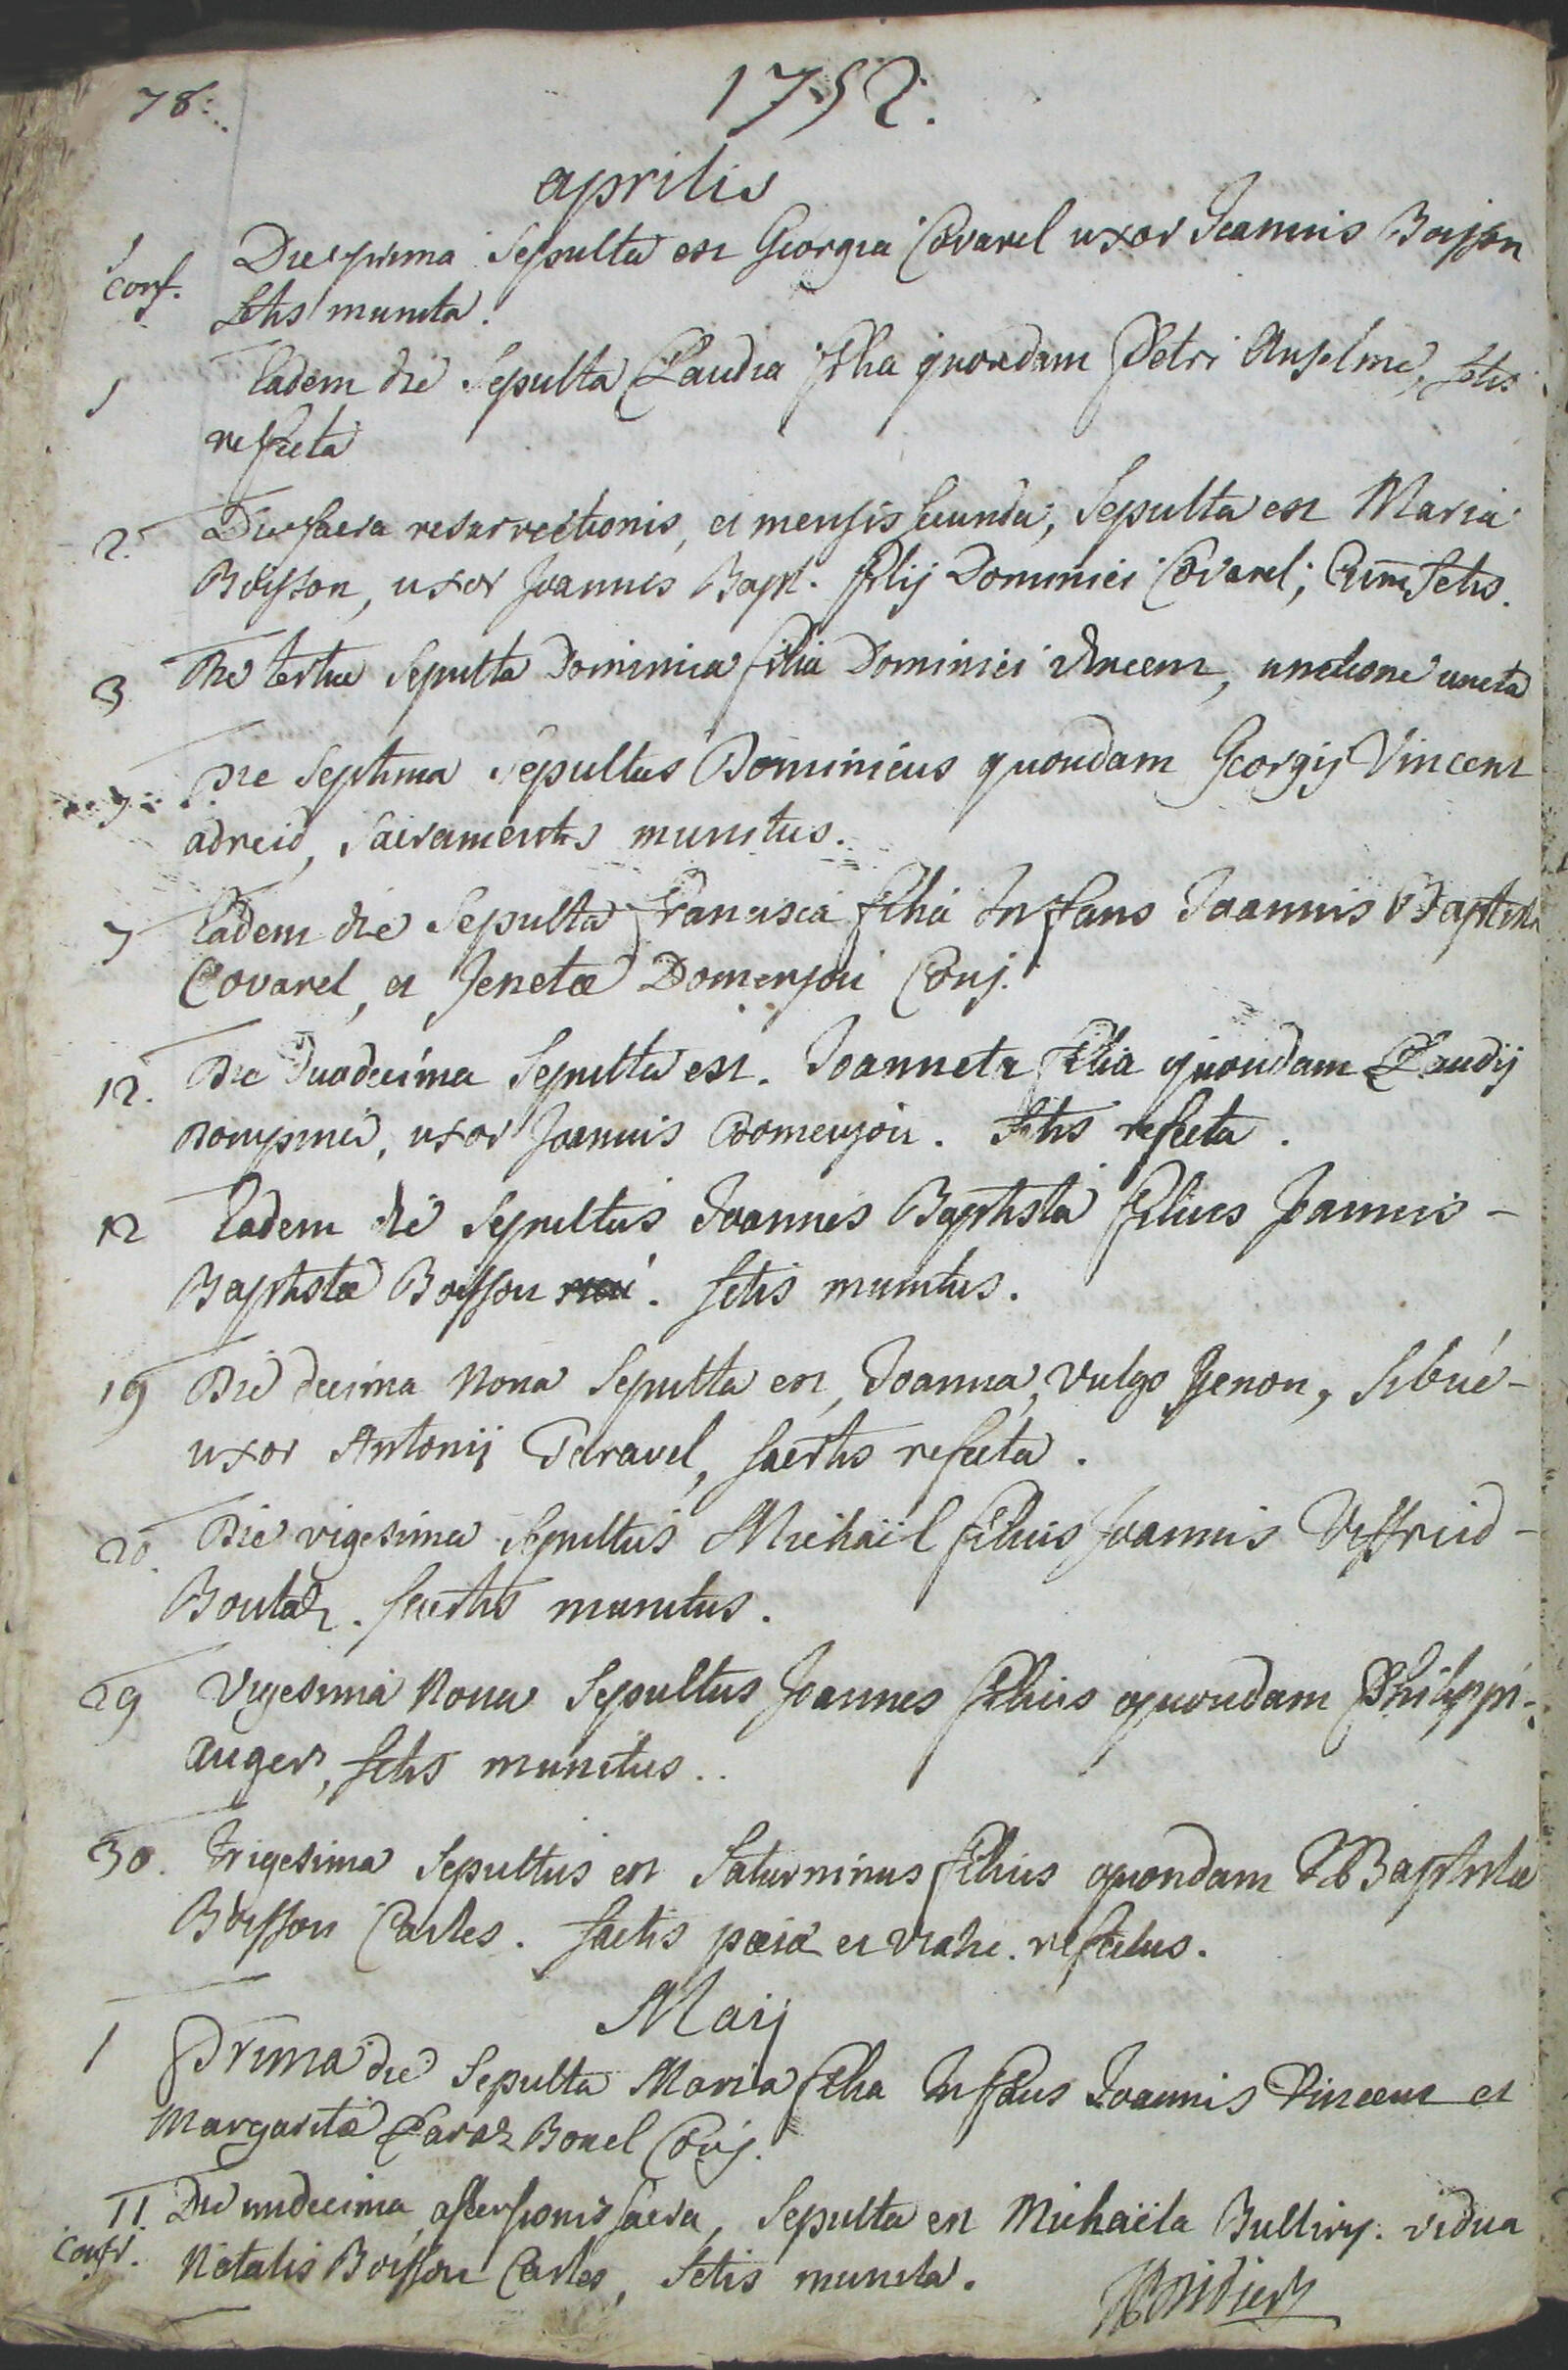 78.
1752.
aprilis
1
conf.
Die prima Sepulta est Georgia Covarel uxor Joannis Boisson
Sctis munita.
1
Eadem die Sepulta Claudia filia quondam Petri Anselme, Sctis
refecta
2.
Die sacra resurrectionis, et mensis secunda, Sepulta est Maria
Boisson, uxor Joannis Bapt. filij Dominici Covarel; Cum Sctis.
3
Die tertia Sepulta Dominica filia Dominici Vincent, unctione uncta
7
Die Septima Sepultus Dominicus quondam Georgij Vincent
adreid, Sacramentis munitus.
7
Eadem die Sepulta Francisca filia Infans Joannis Baptistæ
Covarel, et Jenetæ Domenjou Conj.
12.
Die Duodecima Sepulta est. Joanneta filia quondam Claudij
uxor Joannis Domenjou. Sctis refecta.
12
Eadem die Sepultus Joannes Baptista filius Joannis -
Baptistæ Boisson. Sctis munitus.
19
Die decima Nona Sepulta est, Joanna, vulgo Jenon, Sibué -
uxor Antonij Taravel, sacrtis refecta.
20.
Die vigesima Sepultus Michaël filius Joannis Deffrieid -
Boutaz. sacrtis munitus.
29
Vigesima Nona Sepultus Joannes filius quondam Philippi -
auger, sctis munitus..
30.
Trigesima Sepultus est Saturninus filius quondam J Baptistæ
Boisson Carles. sactis pæiæ et viatic. refectus.
Maij
1
Prima die Sepulta Maria filia Infans Joannis Vincent et
Margaritæ Claraz Bonel Conj.
11.
Confr.
Die undecima, ascensionis sacra, Sepulta est Michaëla Bulliry. vidua
Natalis Boisson Carles, Sctis munita.